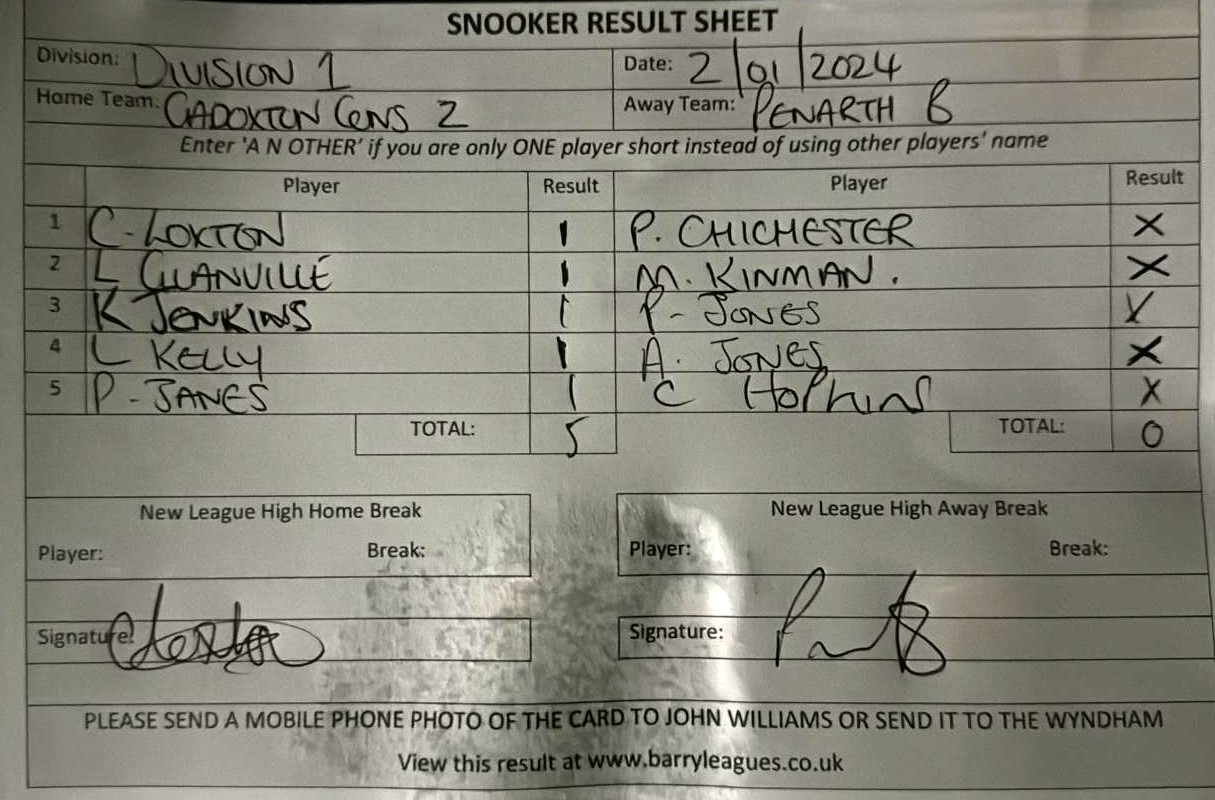 SNOOKER RESULT SHEET
Division: DIVISION 1 Date: 2/01/2024
Home Team: CADOXTON CONS 2 Away Team: PENARTH B
Enter 'A N OTHER' if you are only ONE player short instead of using other players' name
Player Result Player Result
1 C. LOXTON 1 P. CHICHESTER X
2 L GLANVILLE 1 M. KINMAN. X
3 K JENKINS 1 P- JONES X
4 L KELLY 1 A. JONES X
5 P - JANES 1 C Hopkins X
TOTAL: 5 TOTAL: 0
New League High Home Break New League High Away Break
Player: Break: Player: Break:
Signature: Signature:
PLEASE SEND A MOBILE PHONE PHOTO OF THE CARD TO JOHN WILLIAMS OR SEND IT TO THE WYNDHAM
View this result at www.barryleagues.co.uk